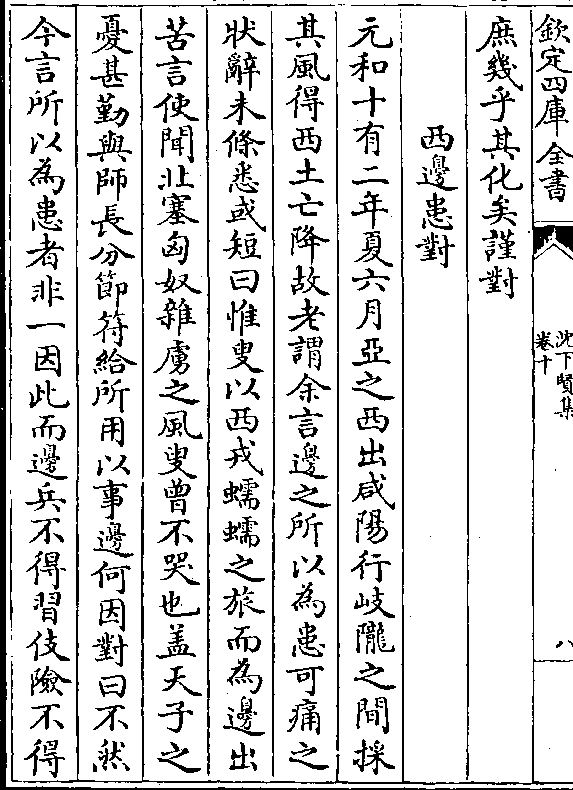 欽定四庫全書
沈下賢集
卷十
八
庶幾乎其化矣謹對
西邊患對
元和十有二年夏六月亞之西出咸陽行岐隴之間採
其風得西土亡降故老謂余言邊之所以為患可痛之
狀辭未條悉或短曰惟叟以西戎蠕蠕之旅而為邊出
苦言使聞北塞匈奴雜虜之風叟曾不哭也盖天子之
憂甚勤與師長分節符給所用以事邊何因對曰不然
今言所以為患者非一因此而邊兵不得習伎險不得